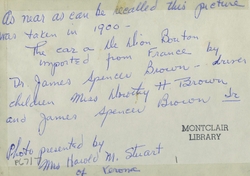 As near as can be recalled this picture
was taken in 1900 -
The car a De Dion Bouton
imported from France by
Dr. James Spencer Brown - driver
children Miss Dorothy H Brown
and James Spencer Brown Jr
MONTCLAIR
LIBRARY
Photo presented by
Mrs Harold M. Stuart
of Verona